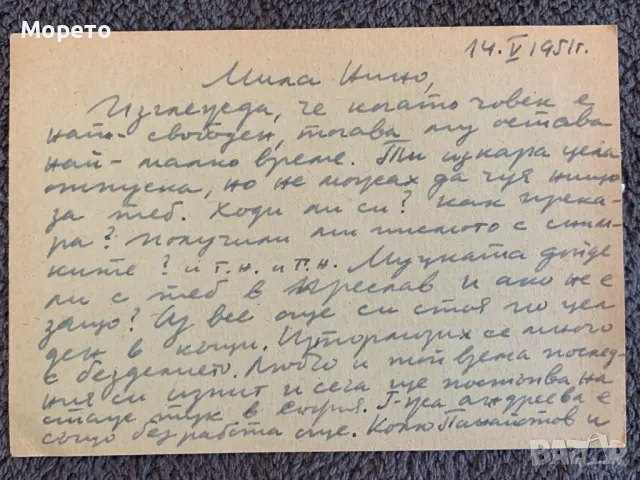 Морето
14.V 1951г.
Мила Нино,
Изглежда, че когато човек е
най-свободен, тогава му остава
най-малко време. Ти изкара цела
отпуска, но не можах да чуя нищо
за теб. Ходи ли си? Как прека-
ра? Получили ли писмото с сним-
ките? и т.н. и т.н. Муцката дойде
ли с теб в Преслав и ако не е
защо? Аз все още си стоя по цел
ден в къщи. Изтормозих се много
с безделието. Любчо и той взема послед-
ния си изпит и сега ще постъпва на
стаж тук в София. Г-жа Андреева е
също без работа още. Колю Панайотов и
BAZAR